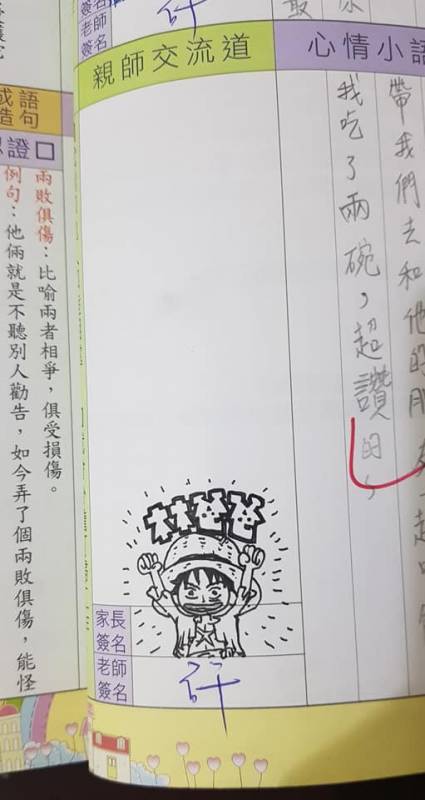 簽名
老師
簽名
親師交流道
心情小語
帶我們去和他的朋
我吃了兩碗，超讚的，
林爸爸
家長
簽名
老師
簽名
許
成語
造句
證口
兩敗俱傷：比喻兩者相爭，俱受損傷。
例句：他倆就是不聽別人勸告，如今弄了個兩敗俱傷，能怪